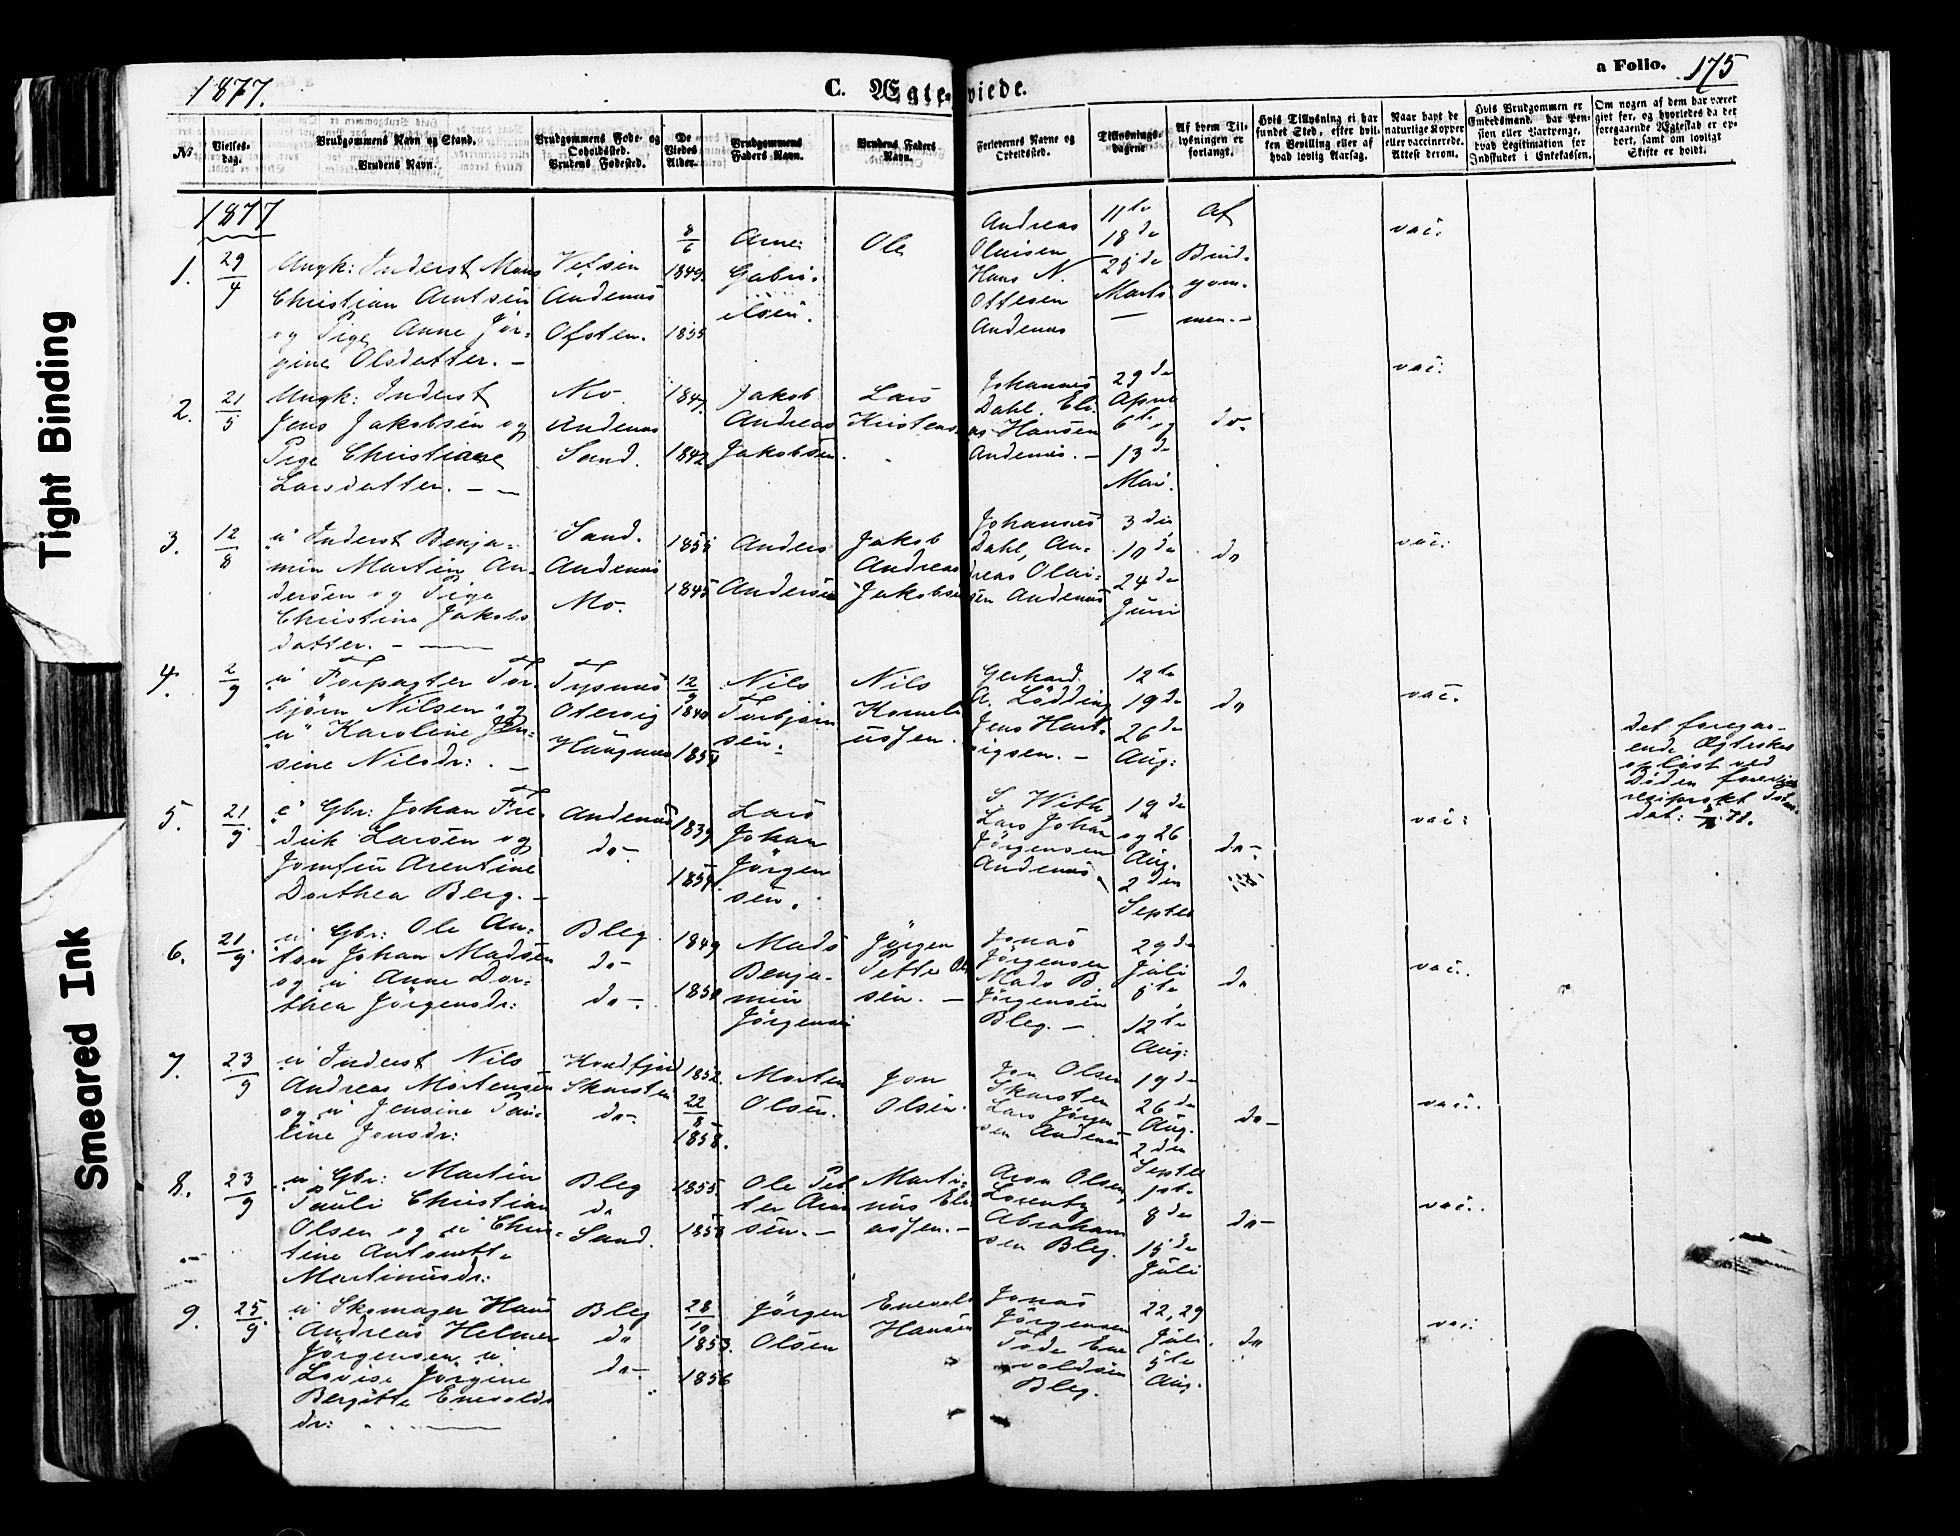 Tight Binding
Smeared Ink
1877.
C. Ægteviede.
a Folio. 175
No.
Vielses-dag.
Brudgommens Navn og Stand.
Brudens Navn.
Brudgommens Føde- og Opholdssted.
Brudens Fødested.
De Viedes Alder.
Brudgommens Faders Navn.
Brudens Faders Navn.
Forlovernes Navne og Opholdssted.
Tillysnings-dagene
Af hvem Til-lysningen er forlangt.
Hvis Tillysning ei har fundet Sted, efter hvil-ken Bevilling eller af hvad lovlig Aarsag.
Naar havt de naturlige Kopper eller vaccinerede. Attest derom.
Hvis Brudgommen er Embedsmand, har Pension eller Vartpenge, hvad Legitimation for Indskudet i Enkekassen.
Om nogen af dem har været gift før, og hvorledes da det foregaaende Ægteskab er ophørt, samt om lovligt Skifte er holdt.
1877
1.
29/4
Ungk: Inderst Mons
Christian Arntsen
og Pige Anne Jør-
gine Olsdatter. –
Vefsen
Andenæs
Ofoten.
8/6
1849.
1855
Arne
Gabri-
elsen.
Ole
Andreas
Olaisen
Hans N.
Ottesen
Andenæs
11te
18de
25de
Marts
Af
Brud-
gom-
men. –
vac:
2.
21/5
Ungk: Inderst
Jens Jakobsen og
Pige Christiane
Larsdatter. –
Mo.
Andenæs
Sand.
1847.
1842
Jakob
Andreas
Jakobsen
Lars
Kristens.
Johannes
Dahl, Eli-
as Hansen
Andenæs. –
29de
April
6te og
13de
Mai.
do.
vac:
3.
12/8
u Inderst Benja-
min Martin An-
dersen og Pige
Christine Jakobs
datter. –
Sand.
Andenæs
Mo.
1855
1845
Anders
Andersen
Jakob
Andreas
Jakobsen
Johannes
Dahl, An-
dreas Olai-
sen Andenæs
3die
10de
24de
Juni
do
vac:
4.
2/9
u Forpagter Tor-
bjørn Nilsen og
u Karoline Jen-
sine Nilsdr: . –
Tysnæs
Otervig
Haugnæs
12/9
1840
1854
Nils
Torbjørn
sen.
Nils
Korneli
ussen.
Gerhard
A. Lødding
Jens Hart-
vigsen. –
12te
19de
26de
Aug:
do
vac.
5.
21/9
e Gbr: Johan Fre-
drik Larsen og
Jomfru Arentine
Dorthea Berg. –
Andenæs
do –
1839
1854.
Lars
Johan
Jørgen
sen.
S. With
Lars Johan
Jørgensen
Andenæs
19de
og 26
Aug.
2den
Septer
do –
vac:
Det foregaa-
ende Ægteskab
opløst ved
Døden
dat:
6.
21/9
u Gbr: Ole An-
ton Johan Madsen
og u Anne Dor-
thea Jørgensdr:
Bleg
do –
do –
1849
1850
Mads
Benja-
min
Jørgensen
Jørgen
Petter Ol
sen. –
Jonas
Jørgensen
Mads B.
Jørgensen
Bleg. –
29de
Juli
5te
12te
Aug:
do
vac.
7.
23/9
u Inderst Nils
Andreas Mortensen
og u Jensine Pau-
line Jonsdr:
Kvedfjord
Skarsten
do –
1852.
22/8
1858.
Morten
Olsen.
Jon
Olsen.
Jon Olsen
Skarsten
Lars Jørgen
sen Andenæs
19de
26de
Aug.
2den
Septer
do –
vac:
8.
23/9
u Gbr: Martin
Pauli Christian
Olsen og u Chris-
tine Antonette
Martinusdr:
Bleg
do
Sand.
1855.
1853
Ole Pet
ter Aron
sen. –
Marti-
nus Eli-
assen. –
Aron Olsen,
Lorents
Abraham
sen Bleg.
1ste
8de
15de
Juli
do –
vac.
9.
25/9
u Skomager Hans
Andreas Helmer
Jørgensen u
Lovise Jørgine
Bergitte Enevolds
dr:
Bleg
do
do –
28/10
1853.
1856
Jørgen
Olsen
Enevold
Hansen
Jonas
Jørgensen
Tode Ene
voldsen
Bleg.
22, 29
Juli.
5te
Aug.
do
vac: